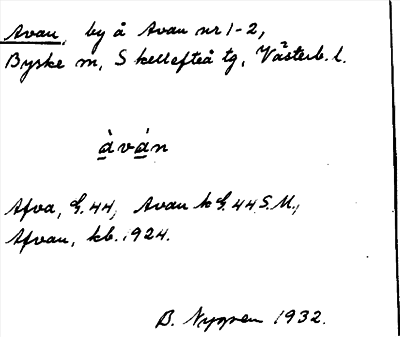 Avan, by å Avan nr 1-2,
Byske sn, Skellefteå tg, Västerb. l.
àván
Afva, G. 44, Avan k G. 44 S. M.,
Afvan, kb. 1924.
B. Nygren 1932.